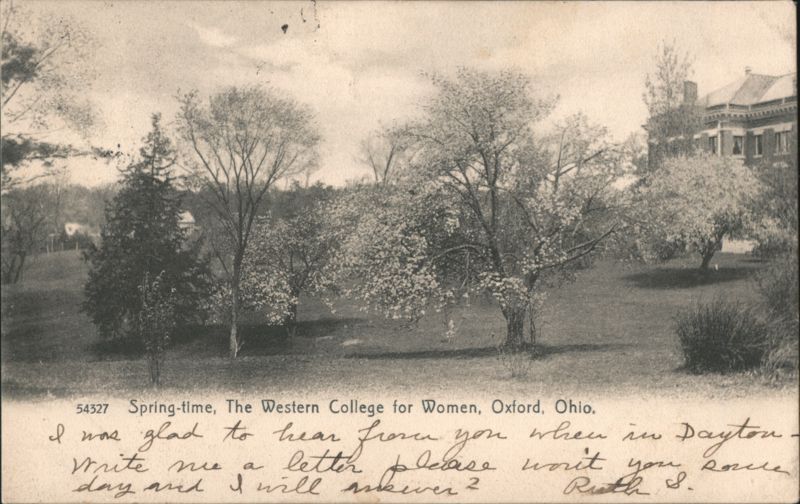 54327 Spring-time, The Western College for Women, Oxford, Ohio.
I was glad to hear from you when in Dayton-
Write me a letter please won't you some
day and I will answer? Ruth S.